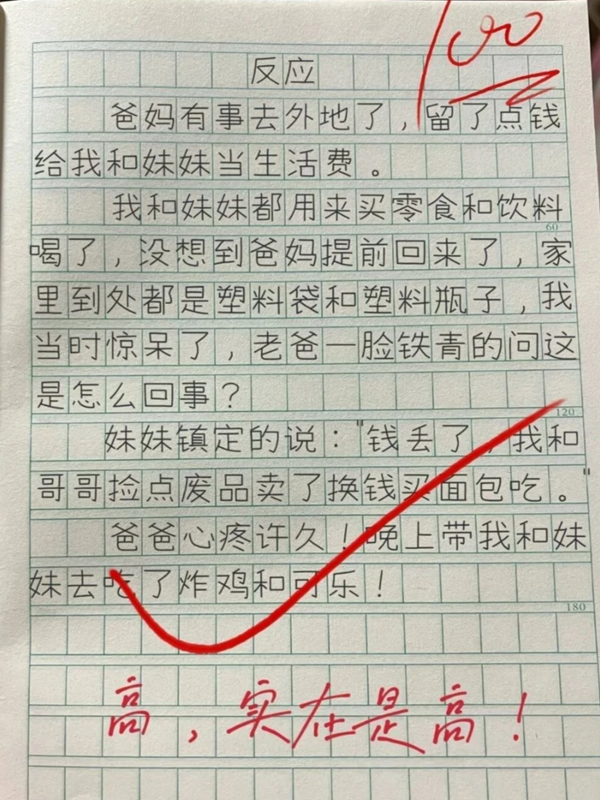 100
反应
爸妈有事去外地了，留了点钱
给我和妹妹当生活费。
我和妹妹都用来买零食和饮料
60
喝了，没想到爸妈提前回来了，家
里到处都是塑料袋和塑料瓶子，我
当时惊呆了，老爸一脸铁青的问这
是怎么回事？
120
妹妹镇定的说："钱丢了，我和
哥哥捡点废品卖了换钱买面包吃。"
爸爸心疼许久！晚上带我和妹
妹去吃了炸鸡和可乐！
180
高，实在是高！